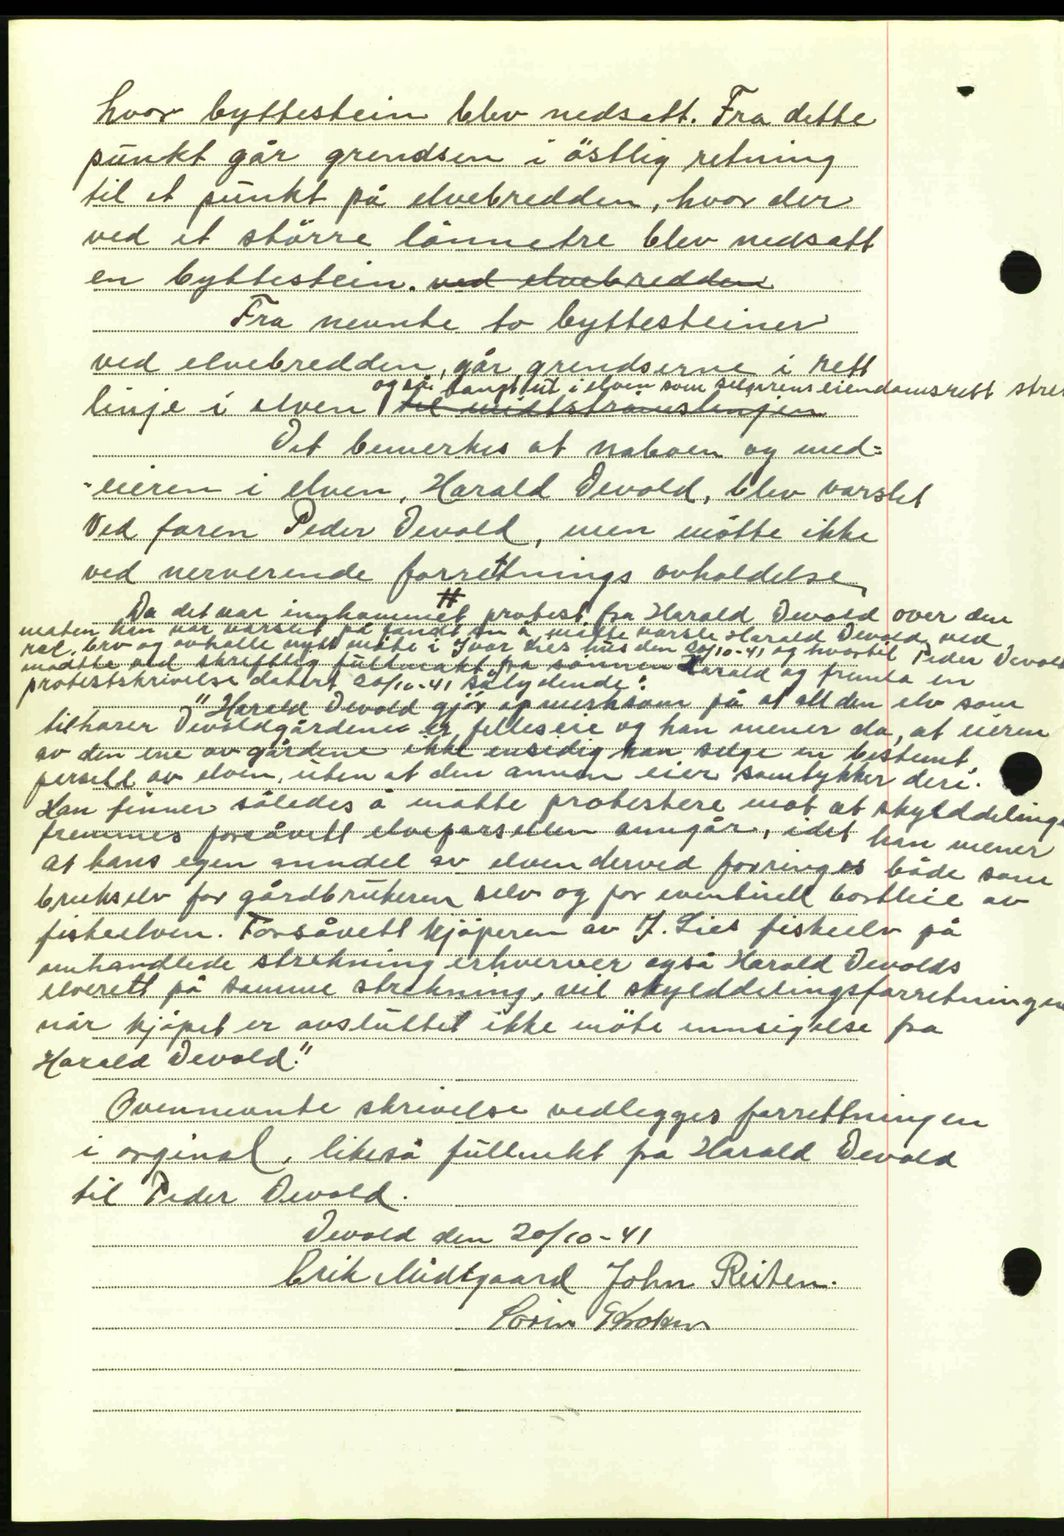 hvor byttestein blev nedsatt. Fra dette
punkt går grendsen i östlig retning
til et punkt på elvebredden, hvor der
ved et större lönnetre blev nedsatt
en byttestein. ved elvebredden
Fra nevnte to byttesteiner
ved elvebredden, går grendserne i rett
også langt ut i elven som selgerens eiendomsrett stre
linje i elven til midtströmslinjen
Det bemerkes at naboen og med=
-eieren i elven, Harald Devold, blev varslet
ved faren Peder Devold, men mötte ikke
ved nerverende forrettnings avholdelse
Da det var innkommet protest fra Harald Devold over den
maten han var varslet på fandt en å måtte varsle Harald Devold ved
rek. brv og avholle nytt möte i Ivar Lies hus den 20/10-41 og hvortil Peder Devold
mödte ved skriftlig fullmakt fra sönnen Harald og fremla en
protestskrivelse datert 20/10-41 sålydende:
"Harald Devold gjör opmerksom på at all den elv som
tilhører Devoldgårdene er felleseie og han mener da, at eieren
av den ene av gårdene ikke ensidig kan selge en bestemt
parsell av elven, uten at den annen eier samtykker deri.
Han finner således å måtte protestere mot at skylddeling
fremmes forsåvett elveparsellen anngår, idet han mener
at hans egen anndel av elven derved forringes både som
brukselv for gårdbrukeren selv og for eventuell bortleie av
fiskeelven. Forsåvett kjöperen av J. Lies fiskeelv på
omhandlede strekning erhverver også Harald Devolds
elverett på samme strekning, vil skylddelingsforretningen
når kjöpet er avsluttet ikke möte innsigelse fra
Harald Devold."
Ovennevnte skrivelse vedlegges forrettningen
i orginal, likeså fullmkt fra Harald Devold
til Peder Devold.
Devold den 20/10-41
Erik Midtgaard John Reiten.